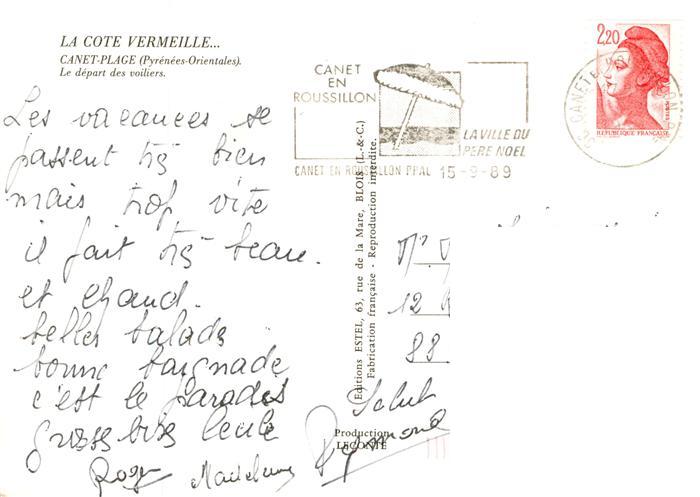 LA COTE VERMEILLE...
CANET-PLAGE (Pyrénées-Orientales).
Le départ des voiliers.
CANET
EN
ROUSSILLON
LA VILLE DU
PERE NOEL
CANET EN ROUSSILLON PPAL 15-9-89
2,20
REPUBLIQUE FRANÇAISE
Les vacances se
passent très bien
mais trop vite
il fait très beau.
et chaud.
belles balads
bonne baignade
c'est le paradis
grosses bises
Roger
Salut
Raymond
12
88
Editions ESTEL, 63, rue de la Mare, BLOIS (L.-&-C.)
Fabrication française - Reproduction interdite.
Production
LECONTE